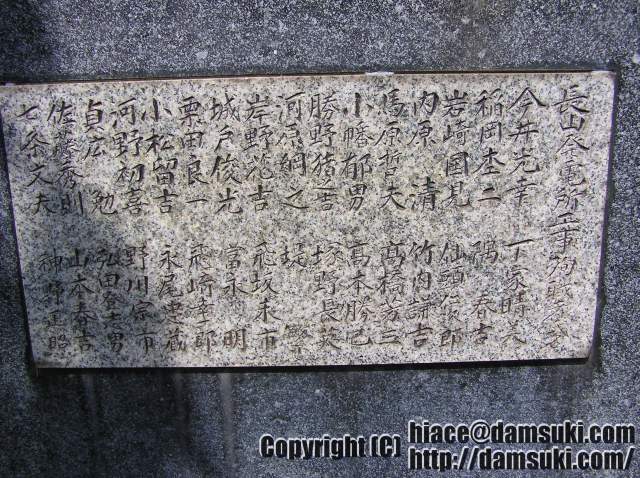 長山発電所工事殉職者
今井光幸 丁家時美
稲岡杢二 隅 春吉
岩崎国見 仙頭俊郎
内原 清 竹内 吉
馬原哲夫 高橋芳三
小幡郁男 高本勝巳
勝野猪之吉 塚野長英
河原綱之 堤
岸野花吉 飛坂末市
城戸俊光 富永 明
栗田良一
小松留吉 永尾忠蔵
河野初喜 野川宗市
貞広 勉 弘田登志男
佐藤秀則 山本春吉
七条文夫 神野正昭
Copyright (C) hiace@damsuki.com
http://damsuki.com/